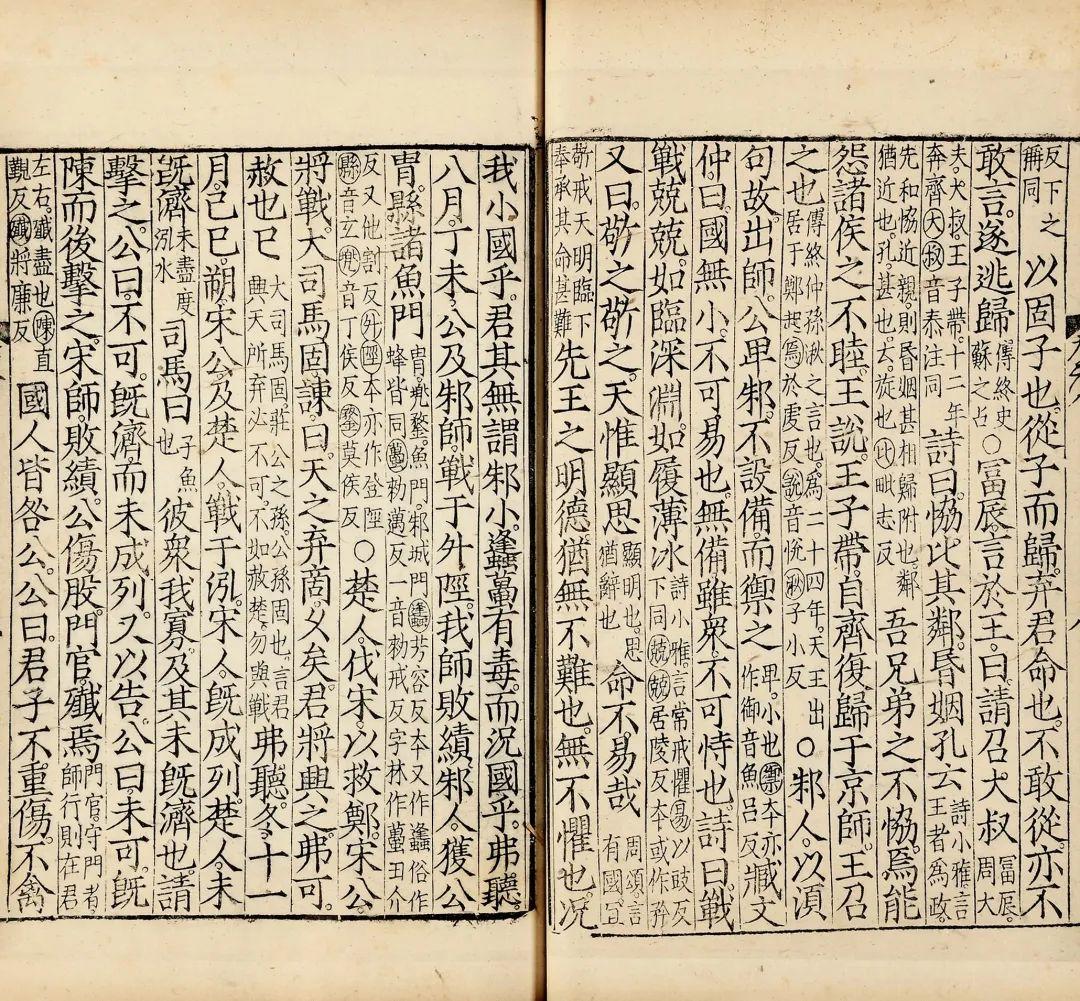 反下之稱同以固子也。從子而歸。弃君命也。不敢從。亦不
敢言。遂逃歸。傳終史蘇之占○富辰言於王。曰。請召大叔富辰。周大
夫。大叔。王子帶。十二年奔齊大叔音泰注同詩曰。恊比其鄰。昏姻孔云詩小雅。言王者為政。
先和恊近親則昏姻甚相歸附也。鄰猶近也。孔。甚也。云。旋也比毗志反吾兄弟之不恊。焉能
怨諸侯之不睦。王說。王子帶。自齊復歸于京師。王召
之也傳終仲孫湫之言也。為二十四年。天王出居于鄭起焉於虔反說音悅湫子小反○邾人以須
句故出師。公卑邾。不設備而禦之卑。小也禦本亦作御音魚呂反臧文
仲曰。國無小。不可易也。無備雖衆。不可恃也。詩曰。戰
戰兢兢。如臨深淵。如履薄冰詩小雅。言常戒懼易以豉反下同兢兢居陵反本或作矜
又曰。敬之敬之。天惟顯思顯。明也。思。猶辭也命不易哉周頌。言有國宜
敬戒天明臨下奉承其命甚難先王之明德。猶無不難也。無不懼也。況
我小國乎。君其無謂邾小。蠭蠆有毒。而況國乎。弗聽。
八月。丁未。公及邾師。戰于升陘。我師敗績。邾人。獲公
冑。縣諸魚門冑。兜鍪。魚門。邾城門蠭芳容反本又作蜂俗作蜂皆同蠆勑邁反一音勑戒反字林作蠆丑介
反又他割反升陘本亦作登陘縣音玄兜音丁侯反鍪莫侯反○楚人。伐宋。以救鄭。宋公。
將戰。大司馬固諫。曰。天之弃商。久矣。君將興之。弗可。
赦也已大司馬固。莊公之孫。公孫固也。言君興天所弃。必不可。不如赦楚。勿與戰弗聽。冬。十一
月。己巳。朔。宋公。及楚人。戰于泓。宋人。旣成列。楚人。未
旣濟未盡度泓水司馬曰子魚也彼衆我寡。及其未旣濟也。請
擊之。公曰。不可。旣濟而未成列。又以告。公曰。未可。旣
陳而後擊之。宋師。敗績。公傷股。門官。殲焉門官。守門者。師行則在君
左右。殲。盡也陳直覲反殲將廉反國人皆咎公。公曰。君子不重傷。不禽